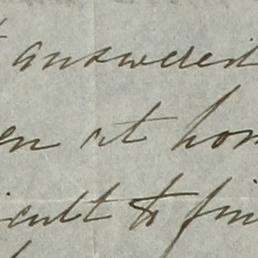 answered
en at hom
icult to fin